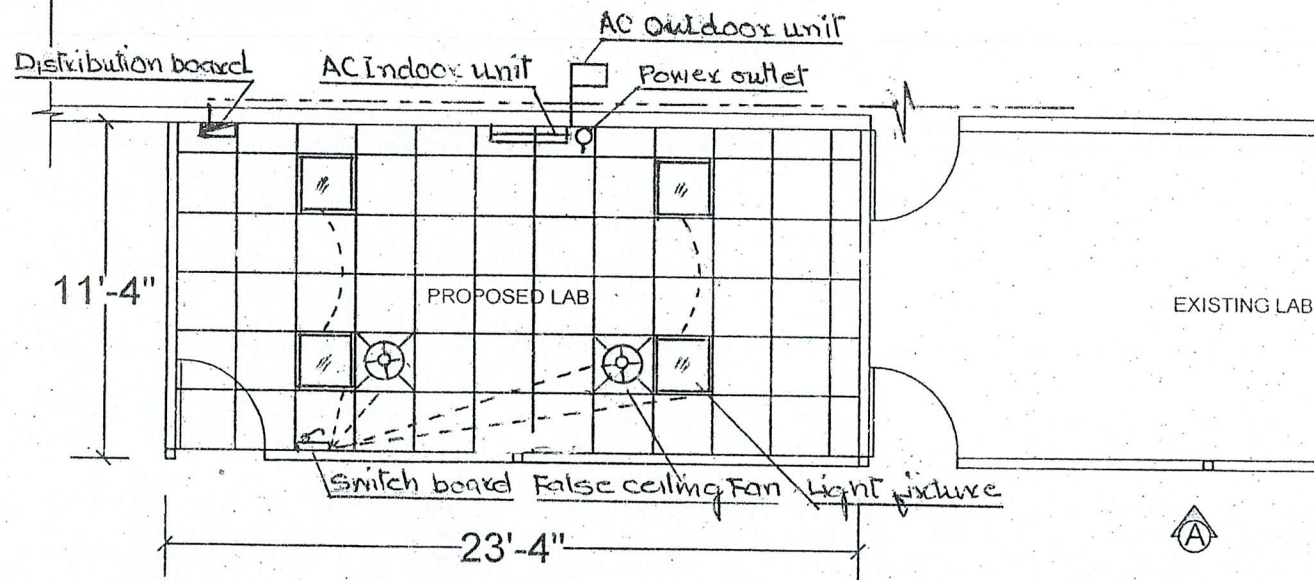 AC Outdoor unit
Distribution board
AC Indoor unit
Power outlet
11'-4"
PROPOSED LAB
EXISTING LAB
Switch board
False ceiling Fan
Light fixture
23'-4"
A